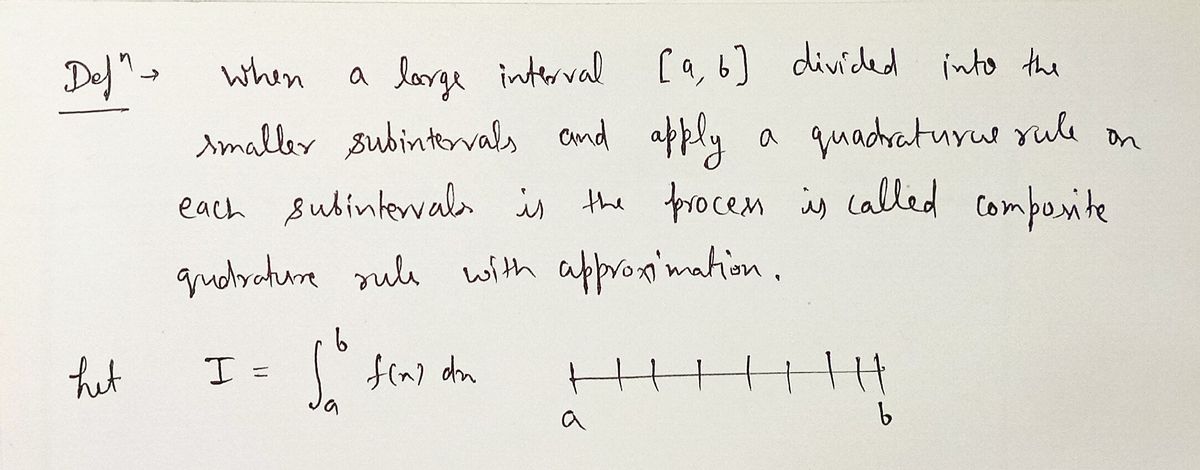 Defⁿ → When a large interval [a, b] divided into the
smaller subintervals and apply a quadraturue rule on
each subintervals is the process is called composite
qudrature rule with approximation.
Let I = ∫_a^b f(x) dx
a b